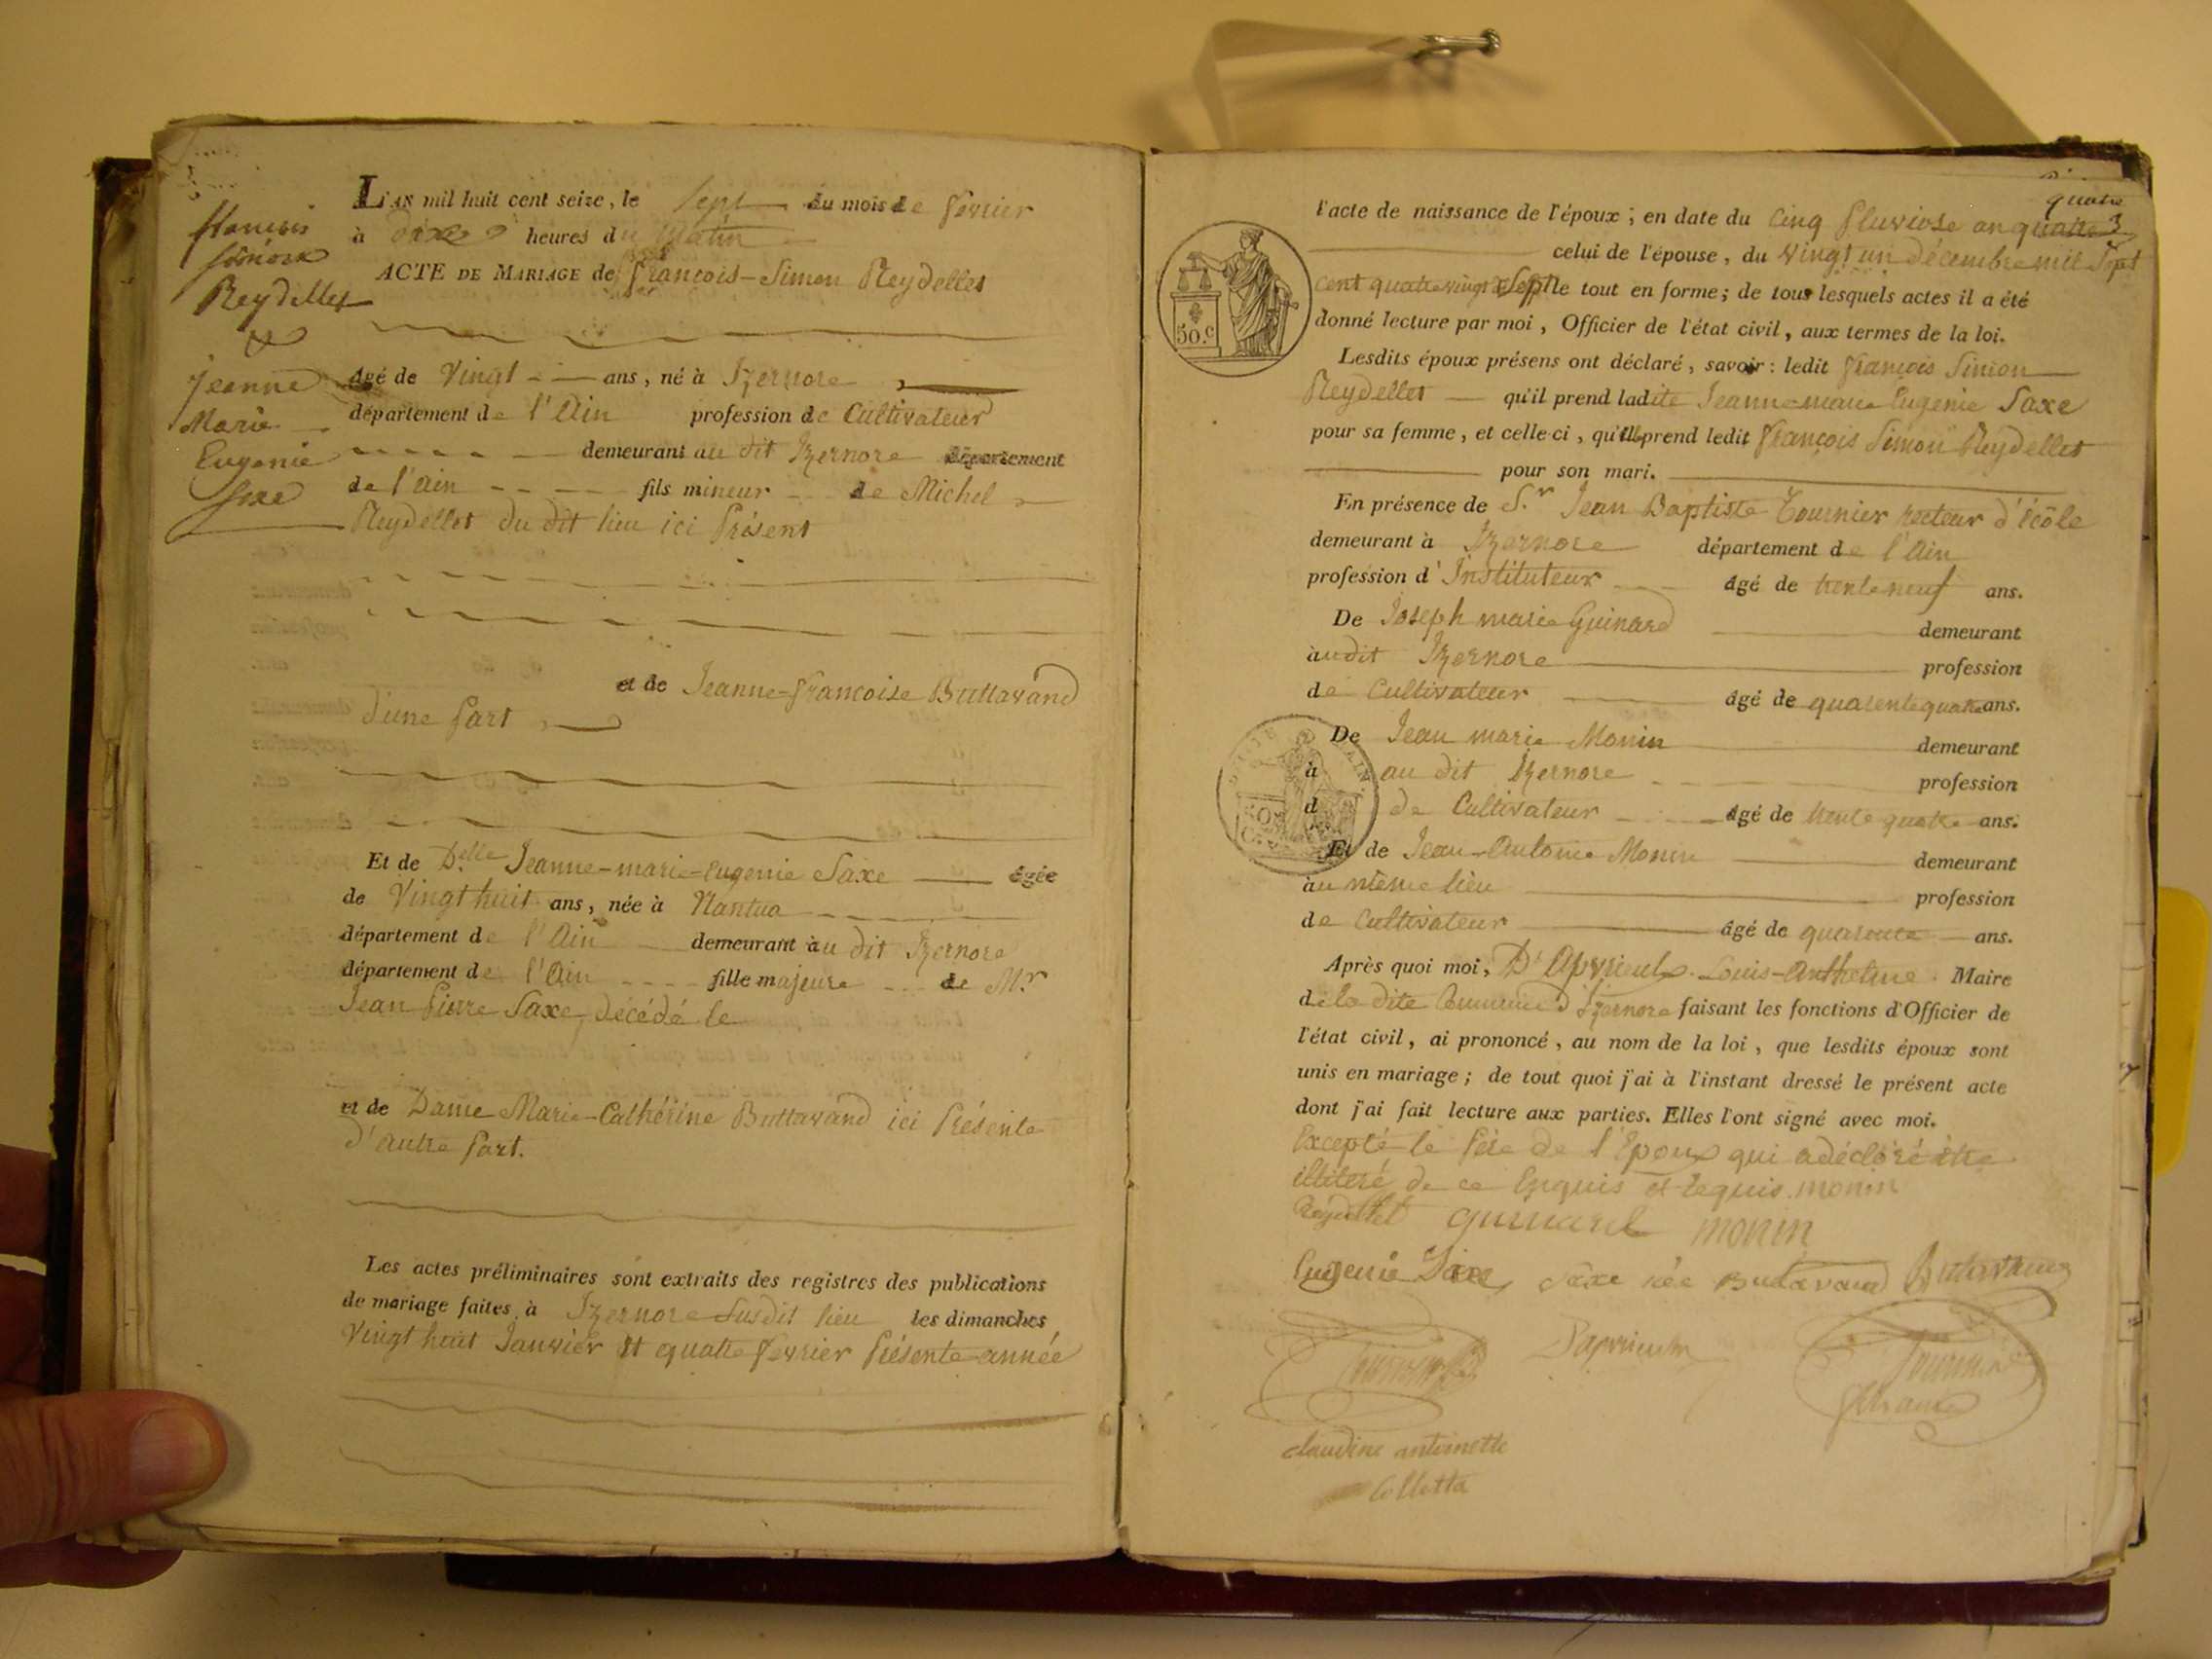 François
Simon
Reydellet
&
Jeanne
Marie
Eugenie
Saxe
L'AN mil huit cent seize, le sept du mois de fevrier
à dix heures du Matin
ACTE DE MARIAGE de François-Simon Reydellet
âgé de Vingt ans, né à Izernore
département de l'Ain profession de Cultivateur
demeurant au dit Izernore département
de l'Ain fils mineur de Michel
Reydellet du dit lieu ici Présent
et de Jeanne-françoise Buttavand
d'une part,
Et de D.elle Jeanne-marie-Eugenie Saxe âgée
de Vingt huit ans, née à Nantua
département de l'Ain demeurant au dit Izernore
département de l'Ain fille majeure de M.r
Jean Pierre Saxe, décédé le
et de Dame Marie-Cathérine Buttavand ici Présente
d'autre part.
Les actes préliminaires sont extraits des registres des publications
de mariage faites à Izernore susdit lieu les dimanches
Vingt huit Janvier et quatre fevrier Présente année
quatre
l'acte de naissance de l'époux ; en date du cinq Pluviose an quatre 3
celui de l'épouse, du Vingt un décembre mil Sept
cent quatre vingt Sept le tout en forme ; de tous lesquels actes il a été
50.c
donné lecture par moi, Officier de l'état civil, aux termes de la loi.
Lesdits époux présens ont déclaré, savoir : ledit François Simon
Reydellet qu'il prend ladite Jeanne marie Eugenie Saxe
pour sa femme, et celle-ci, qu'elle prend ledit François Simon Reydellet
pour son mari.
En présence de S.r Jean Baptiste Tournier recteur d'école
demeurant à Izernore département de l'Ain
profession d'Instituteur âgé de trente neuf ans.
De Joseph marie Guinard demeurant
audit Izernore profession
de Cultivateur âgé de quarente quatre ans.
De Jean marie Monin demeurant
à au dit Izernore profession
d de Cultivateur âgé de trente quatre ans.
Et de Jean-Antoine Monin demeurant
au même lieu profession
de Cultivateur âgé de quarente ans.
Après quoi moi, D'Apvrieulx Louis-Anthelme Maire
de la dite Commune d'Izernore faisant les fonctions d'Officier de
l'état civil, ai prononcé, au nom de la loi, que lesdits époux sont
unis en mariage ; de tout quoi j'ai à l'instant dressé le présent acte
dont j'ai fait lecture aux parties. Elles l'ont signé avec moi.
Excepté le Père de l'Epoux qui a déclaré être
illiteré de ce Enquis et Requis. monin
Reydellet guinard monin
Eugenie Saxe Saxe née Butavand Butavand
Tournier
claudine antoinette
Colletta